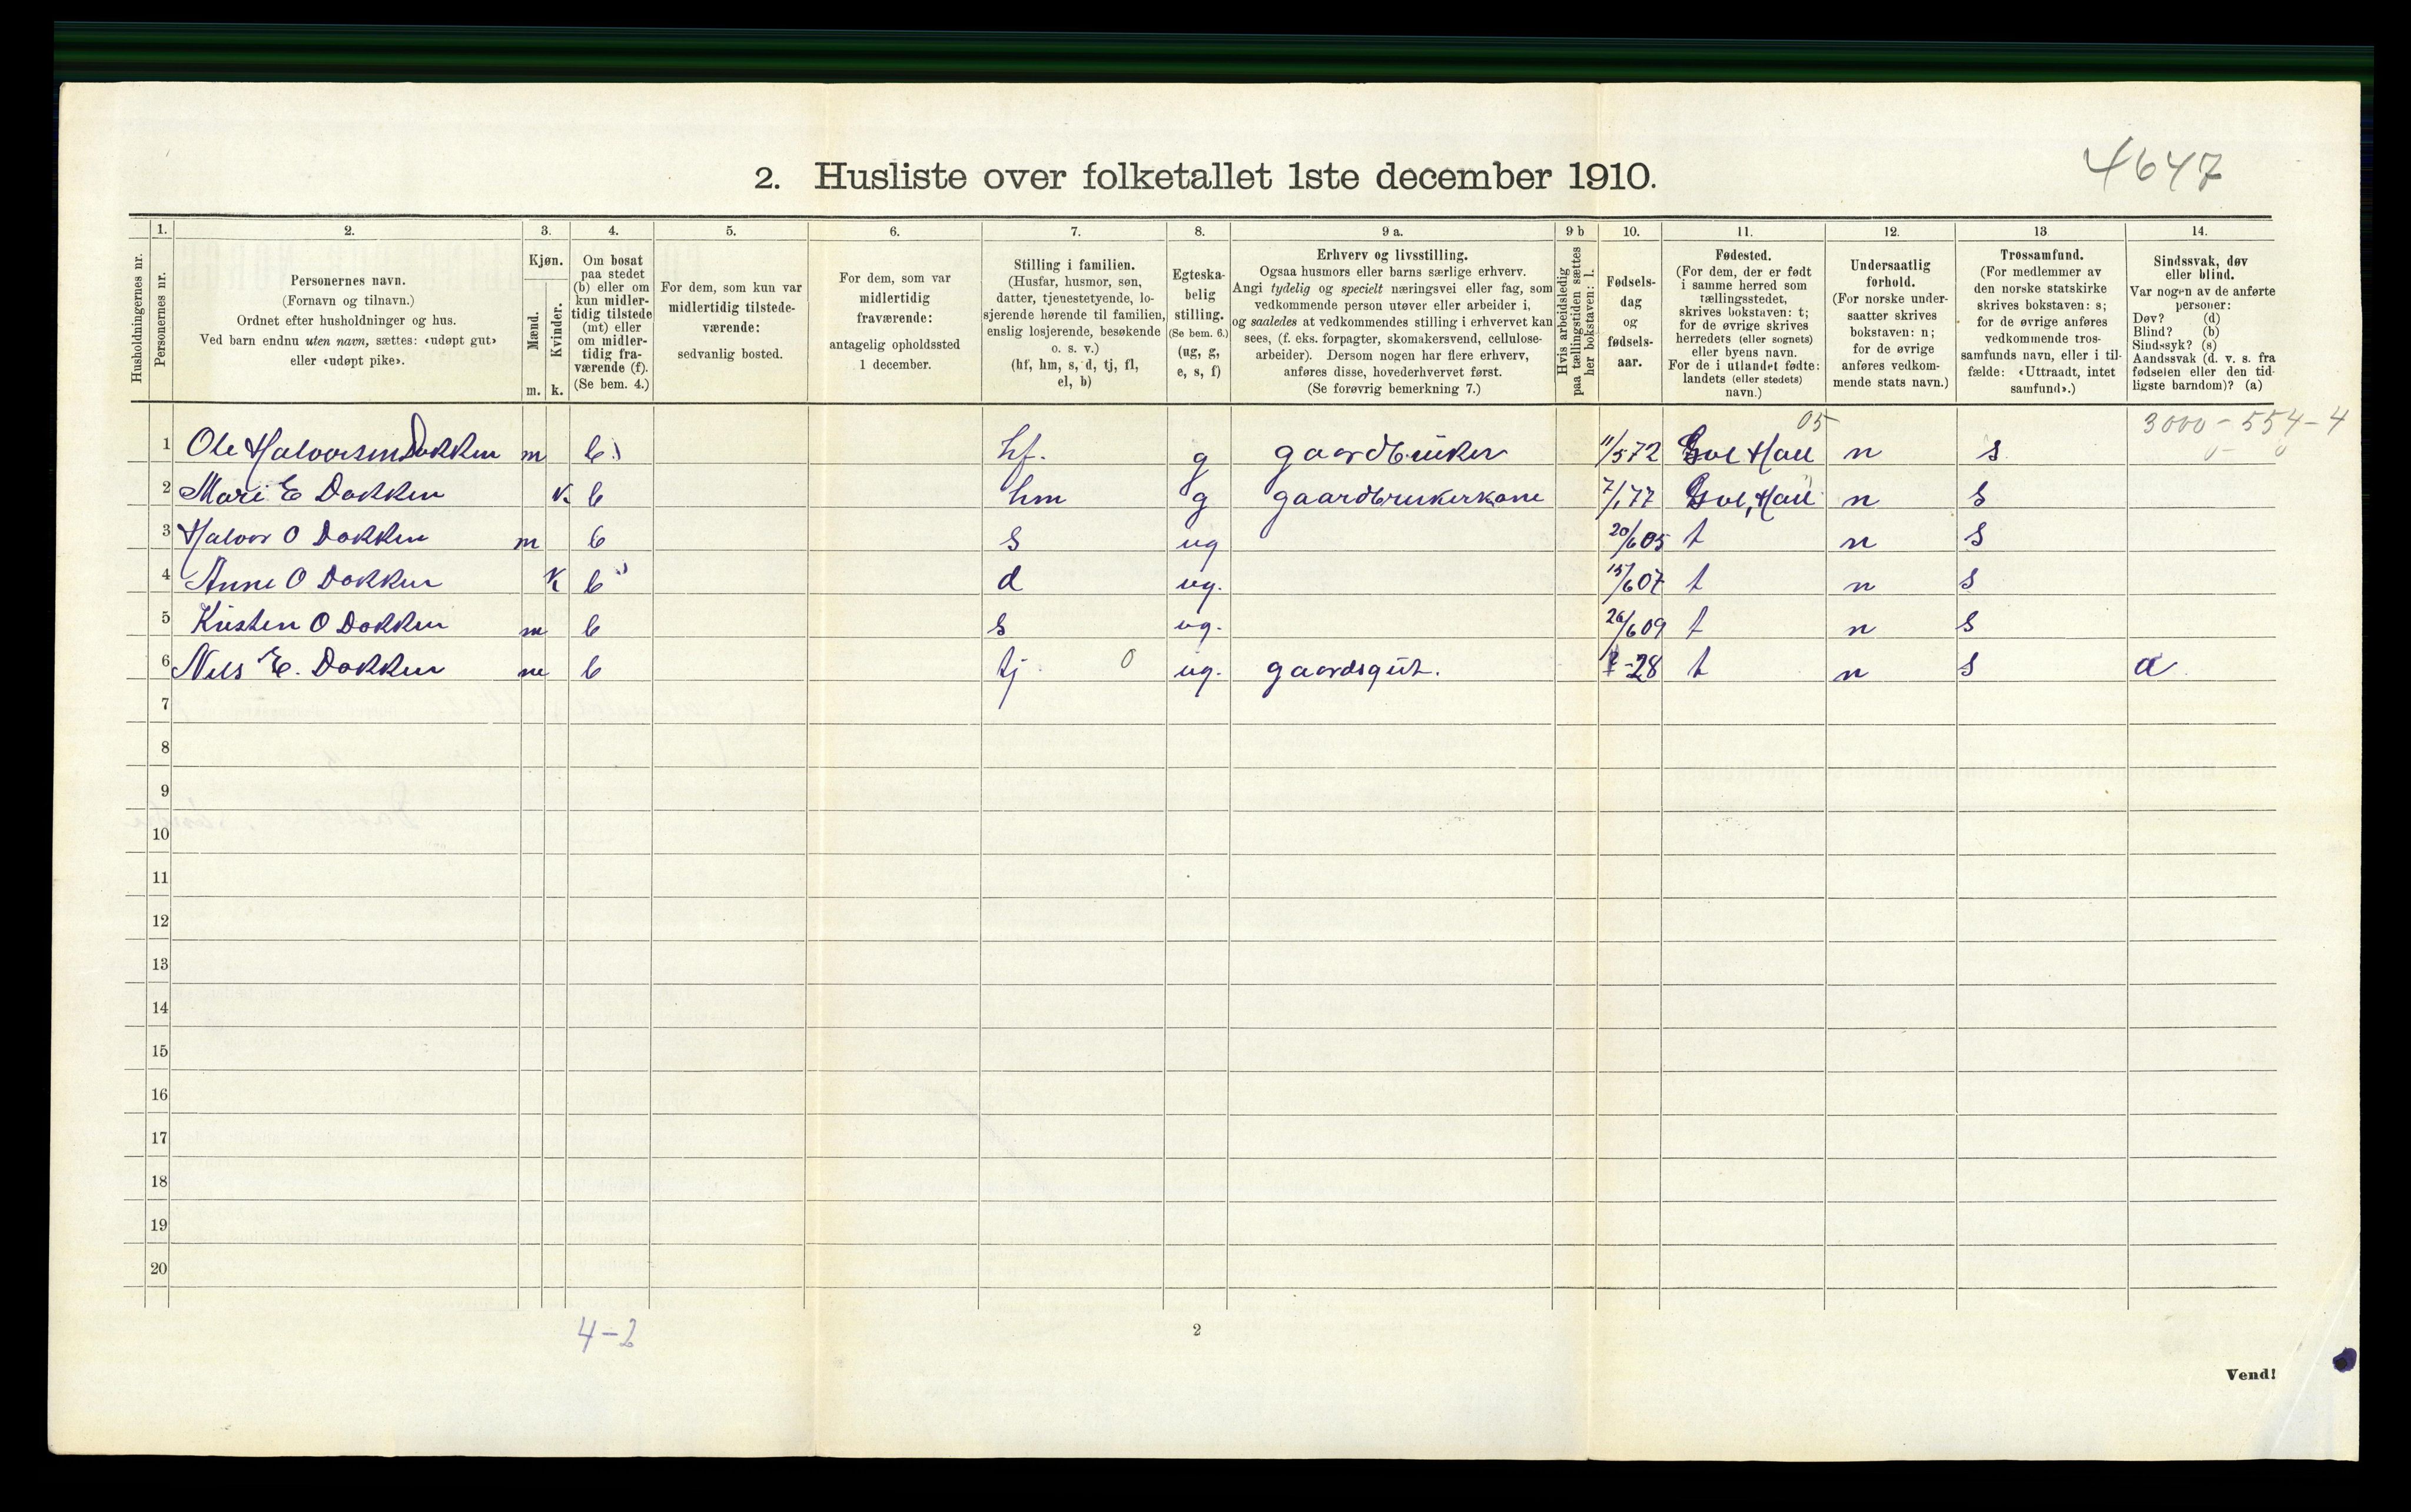 4647
2. Husliste over folketallet 1ste december 1910.
Husholdningernes nr.
1. Personernes nr.
2. Personernes navn. (Fornavn og tilnavn.) Ordnet efter husholdninger og hus. Ved barn endnu uten navn, sættes: «udøpt gut» eller «udøpt pike».
3. Kjøn. Mænd. m. Kvinder. k.
4. Om bosat paa stedet (b) eller om kun midler-tidig tilstede (mt) eller om midler-tidig fra-værende (f). (Se bem. 4.)
5. For dem, som kun var midlertidig tilstede-værende: sedvanlig bosted.
6. For dem, som var midlertidig fraværende: antagelig opholdssted 1 december.
7. Stilling i familien. (Husfar, husmor, søn, datter, tjenestetyende, lo-sjerende hørende til familien, enslig losjerende, besøkende o. s. v.) (hf, hm, s, d, tj, fl, el, b)
8. Egteska-belig stilling. (Se bem. 6.) (ug, g, e, s, f)
9 a. Erhverv og livsstilling. Ogsaa husmors eller barns særlige erhverv. Angi tydelig og specielt næringsvei eller fag, som vedkommende person utøver eller arbeider i, og saaledes at vedkommendes stilling i erhvervet kan sees, (f. eks. forpagter, skomakersvend, cellulose-arbeider). Dersom nogen har flere erhverv, anføres disse, hovederhvervet først. (Se forøvrig bemerkning 7.)
9 b Hvis arbeidsledig paa tællingstiden sættes her bokstaven: l.
10. Fødsels-dag og fødsels-aar.
11. Fødested. (For dem, der er født i samme herred som tællingsstedet, skrives bokstaven: t; for de øvrige skrives herredets (eller sognets) eller byens navn. For de i utlandet fødte: landets (eller stedets) navn.)
12. Undersaatlig forhold. (For norske under-saatter skrives bokstaven: n; for de øvrige anføres vedkom-mende stats navn.)
13. Trossamfund. (For medlemmer av den norske statskirke skrives bokstaven: s; for de øvrige anføres vedkommende tros-samfunds navn, eller i til-fælde: «Uttraadt, intet samfund».)
14. Sindssvak, døv eller blind. Var nogen av de anførte personer: Døv? (d) Blind? (b) Sindssyk? (s) Aandssvak (d. v. s. fra fødselen eller den tid-ligste barndom)? (a)
05 3000 - 554 - 4
1 Ole Halvorsen Dokken m b hf. g gaardbruker 11/5 72 Gol Hall n s
2 Mari E Dokken k b hm g gaardbrukerkone 7/1 77 Gol, Hall n s
3 Halvor O Dokken m b s ug 20/6 05 t n s
4 Anne O Dokken k b d ug. 15/6 07 t n s
5 Kristen O Dokken m b s ug. 26/6 09 t n s
6 Nils E. Dokken m b tj 0 ug. gaardsgut. ? - 28 t n s a
7
8
9
10
11
12
13
14
15
16
17
18
19
20
4-2
2
Vend!